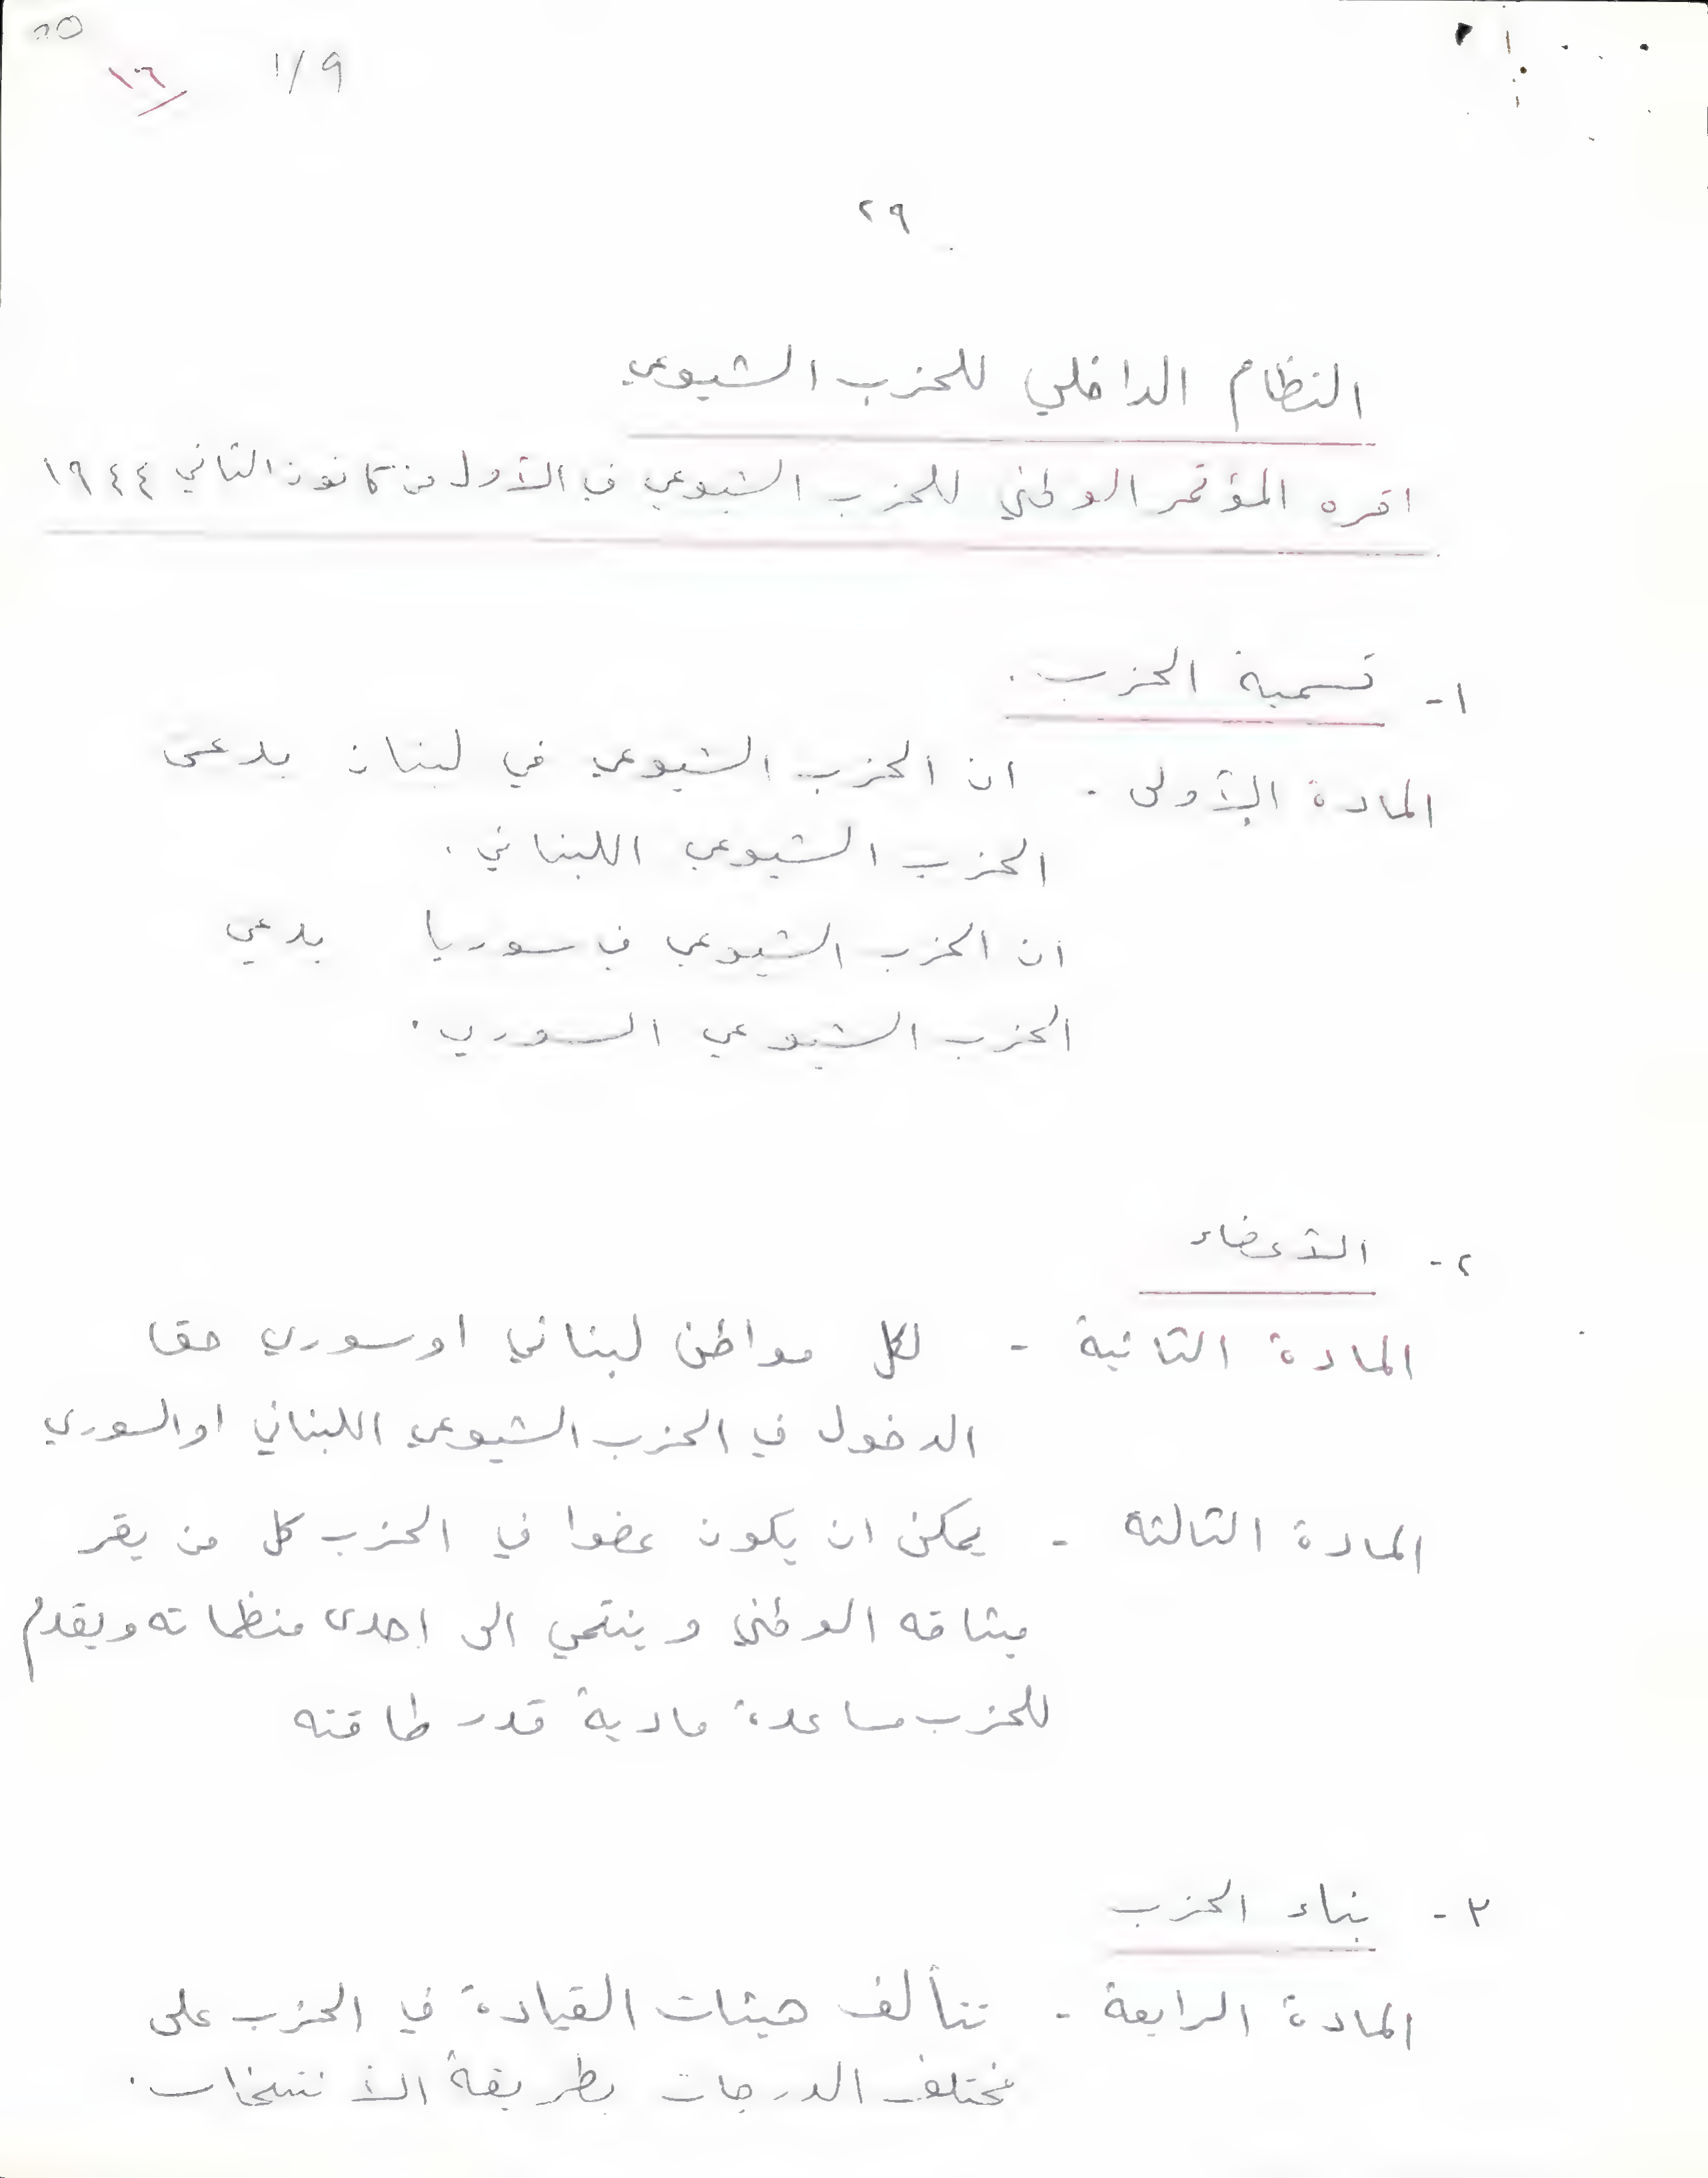 ١٠٦
1/9
٢٩
النظام الداخلي للحزب الشيوعي
اقره المؤتمر الوطني للحزب الشيوعي في الأول من كانون الثاني ١٩٤٤
١- تسمية الحزب.
المادة الأولى. ان الحزب الشيوعي في لبنان يدعى
الحزب الشيوعي اللبناني.
ان الحزب الشيوعي في سوريا يدعي
الحزب الشيوعي السوري.
٢- الأعضاء
المادة الثانية - لكل مواطن لبناني او سوري حقا
الدخول في الحزب الشيوعي اللبناني او السوري
المادة الثالثة - يمكن ان يكون عضوا في الحزب كل من يقر
ميثاقه الوطني وينتمي الى احدى منظماته ويقدم
للحزب مساعدة مادية قدر طاقته
٣- بناء الحزب
المادة الرابعة - تتألف هيئات القيادة في الحزب على
مختلف الدرجات بطريقة الأنتخاب.